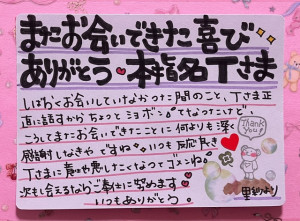 またお会いできた喜び
ありがとう♥本指名Tさま
しばらくお会いしていなかった間のこと、Tさま正
直に話すからちょっとショボン°てなったけど、
こうしてまたお会いできたことに何よりも深く
感謝しなきゃですね♥いつも反応良き
Tさまに意地悪したくなってゴメンね。
次も会えるならご奉仕に努めます♥
いつもありがとう。
Thank
you!
里紗より